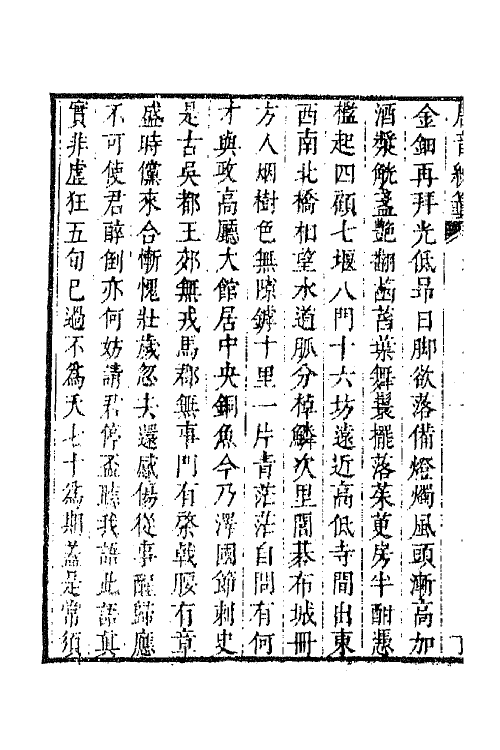 唐音統籤
金鈿再拜光低昂日脚欲落備燈燭風頭漸高加
酒漿觥盞艷翻菡萏葉舞鬟擺落茱萸房半酣憑
檻起四顧七堰八門十六坊遠近高低寺間出東
西南北橋相望水道脈分棹鱗次里閭棊布城冊
方人烟樹色無隙罅十里一片青茫茫自問有何
才與政高廳大館居中央銅魚今乃澤國節刺史
是古吳都王郊無戎馬郡無事門有棨戟腰有章
盛時儻來合慚愧壯歲忽去還感傷從事醒歸應
不可使君醉倒亦何妨請君停盃聽我語此語真
實非虛狂五旬已過不為夭七十為期蓋是常須